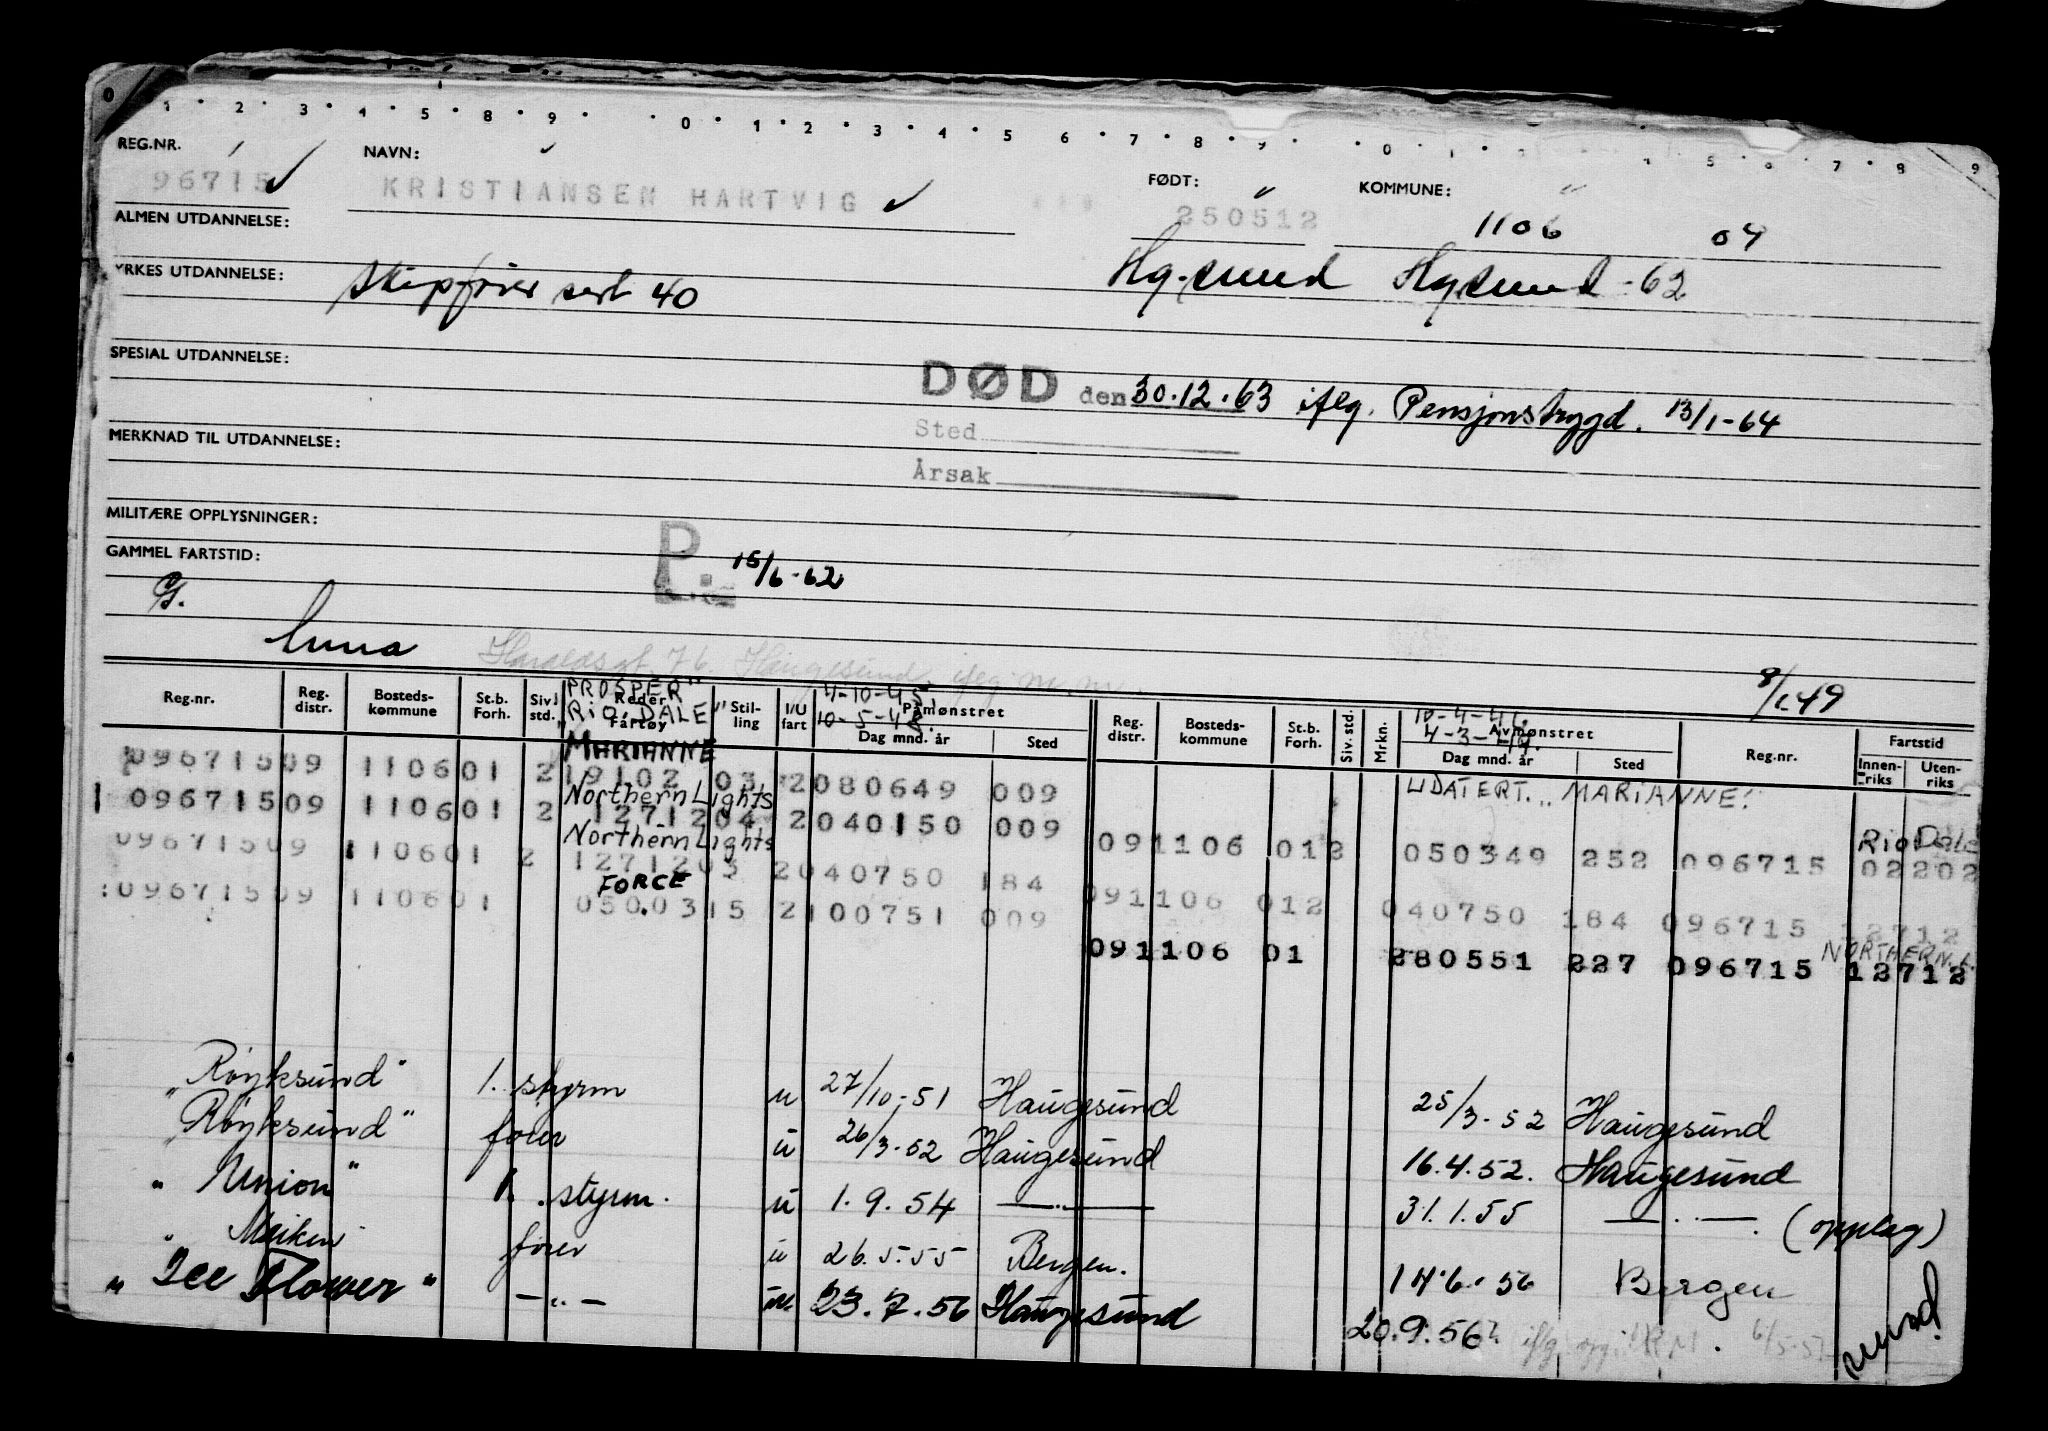 0 1 2 3 4 5 8 9 0 1 2 3 4 5 6 7 8 9 0 1 4 5 6 7 8 9
REG.NR. NAVN: FØDT: KOMMUNE:
96715 KRISTIANSEN HARTVIG 250512 1106 04
ALMEN UTDANNELSE:
YRKES UTDANNELSE: skipsfører sert 40 Hg.sund Hg.sund -62
SPESIAL UTDANNELSE:
DØD den 30.12.63 iflg. Pensjonstrygd. 13/1-64
Sted
MERKNAD TIL UTDANNELSE:
Årsak
MILITÆRE OPPLYSNINGER:
GAMMEL FARTSTID: P. 15/6-62
G.
Haraldsgt. 76 Haugesund. iflg. m.m.
8/1.49
PROSPER" 4-10-45 10-4-46
"RIO DALE" 10-5-48 4-3-49
Reg.nr. Reg. distr. Bosteds-kommune St.b. Forh. Siv. std. Rederi Fartøy Stil-ling I/U fart Påmønstret Dag mnd. år Sted Reg. distr. Bosteds-kommune St.b. Forh. Siv. std. Mrkn. Avmønstret Dag mnd. år Sted Reg.nr. Fartstid Innen-riks Uten-riks
MARIANNE
09671509 110601 2 19102 03 2 080649 009 UDATERT... MARIANNE!
Northern Lights
09671509 110601 2 1271204 2 040150 009
Northern Lights Rio Dale
09671509 110601 2 1271203 2 040750 184 091106 012 050349 252 096715 02202
FORCE
09671509 110601 050.0315 2 100751 009 091106 012 040750 184 096715 12712
NORTHERN. L.
091106 01 280551 227 096715 12712
"Röyksund" 1. styrm u 27/10-51 Haugesund 25/3-52 Haugesund
"Röyksund" fører u 26/3-52 Haugesund 16.4.52. Haugesund
"Union" 1. styrm. u 1.9.54 —..— 31.1.55 —..— (opplag)
"Meiken fører u 26.5.55 Bergen. 14.6.56 Bergen
"Ice Flower" —..— 23.7.56 Haugesund 20.9.56? iflg. opg. 6/5-57